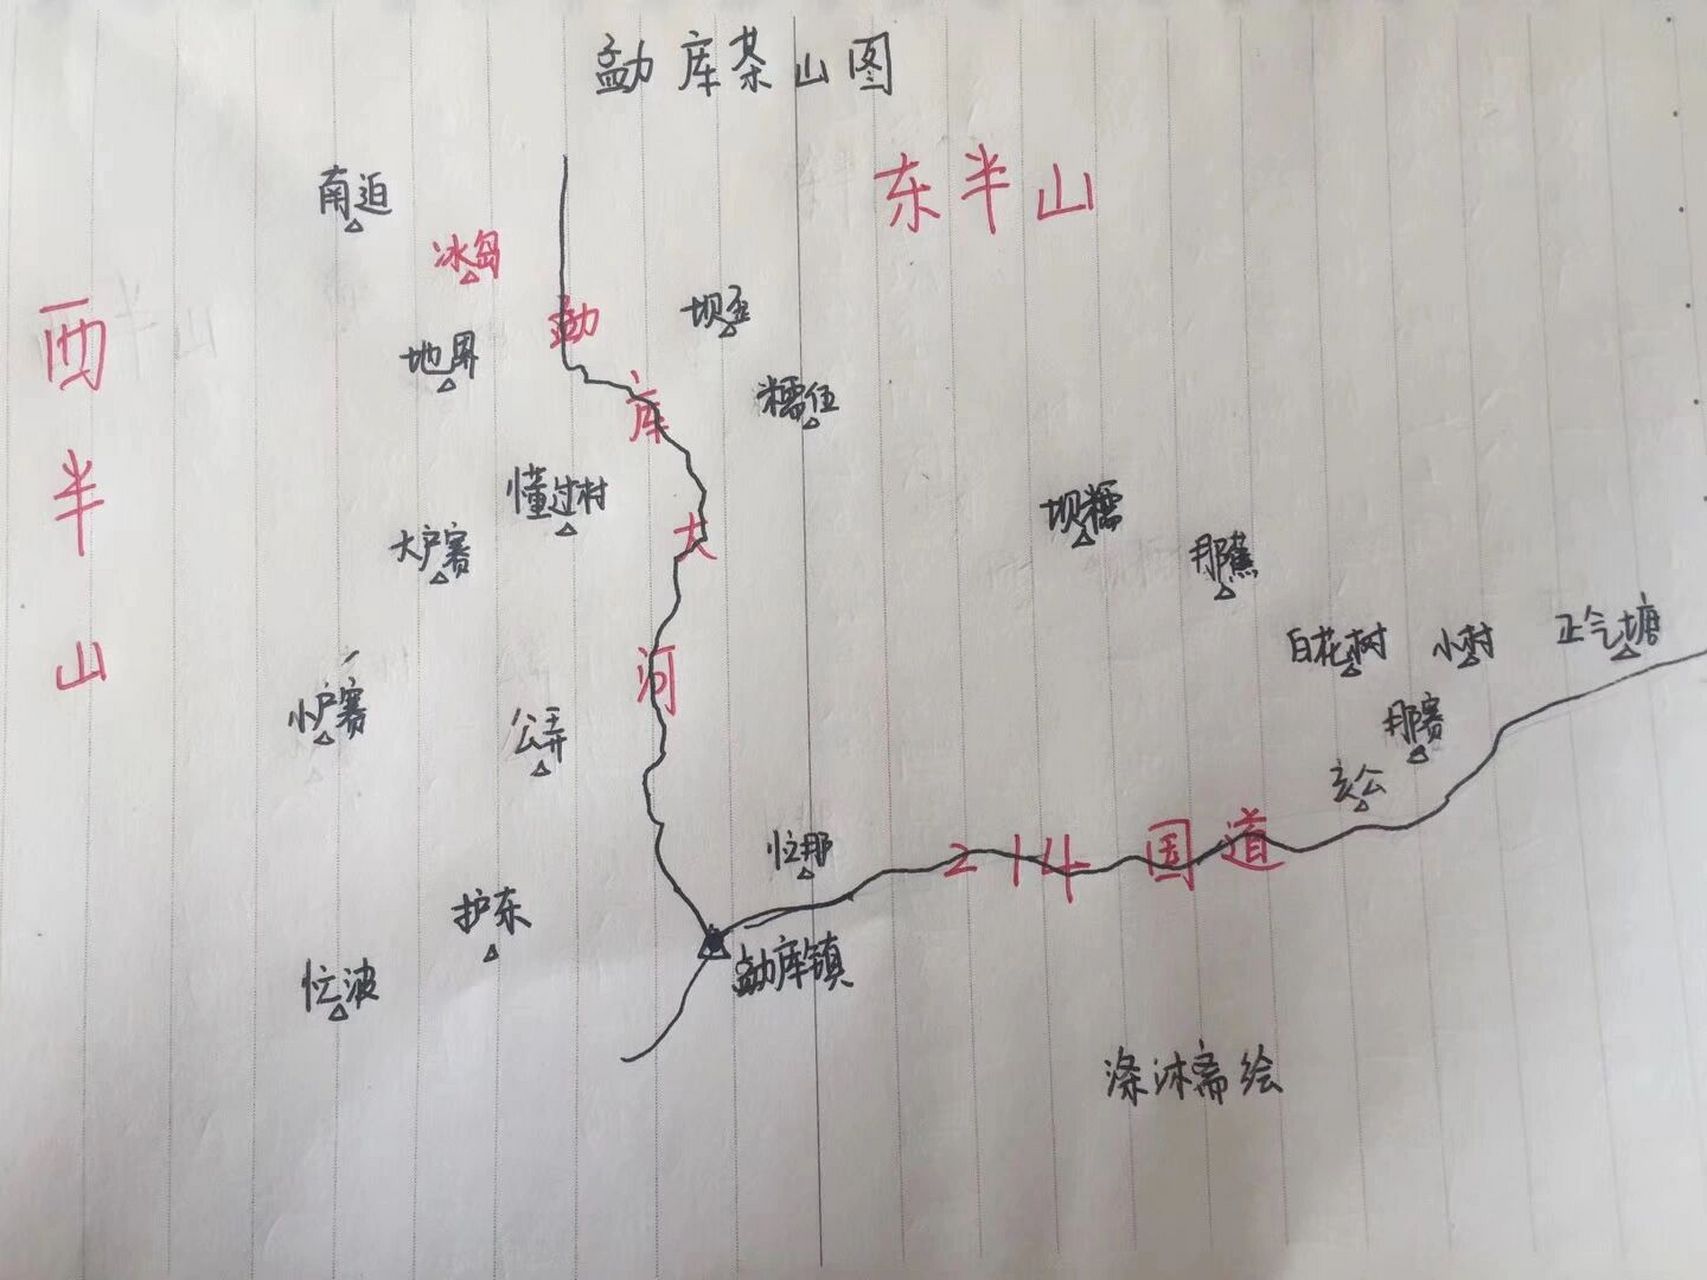 勐库茶山图
东半山
南迫
冰岛
西半山
勐库大河
坝歪
地界
糯伍
懂过村
坝糯
大户赛
那蕉
白花树
小村
正气塘
小户赛
公弄
那赛
亥公
忙那
214国道
护东
勐库镇
忙波
涤沐斋绘